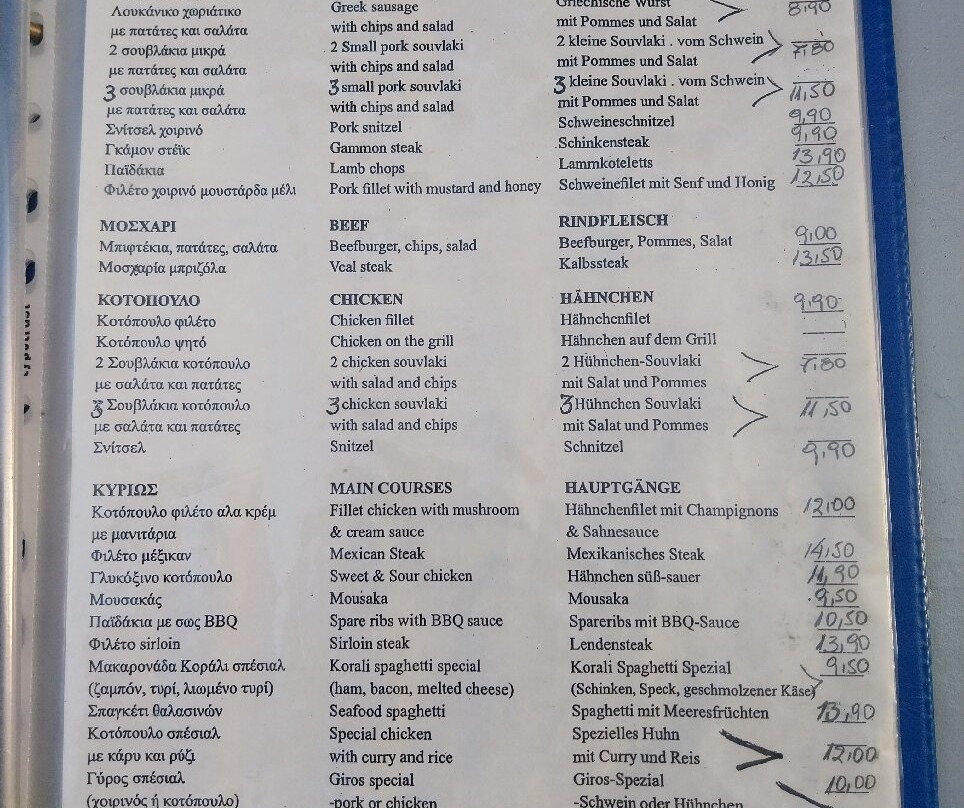 Λουκάνικο χωριάτικο Greek sausage Griechische Wurst 8,90
με πατάτες και σαλάτα with chips and salad mit Pommes und Salat
2 σουβλάκια μικρά 2 Small pork souvlaki 2 kleine Souvlaki . vom Schwein 7,80
με πατάτες και σαλάτα with chips and salad mit Pommes und Salat
3 σουβλάκια μικρά 3 small pork souvlaki 3 kleine Souvlaki . vom Schwein 11,50
με πατάτες και σαλάτα with chips and salad mit Pommes und Salat
Σνίτσελ χοιρινό Pork snitzel Schweineschnitzel 9,90
Γκάμον στέϊκ Gammon steak Schinkensteak 9,90
Παϊδάκια Lamb chops Lammkoteletts 13,90
Φιλέτο χοιρινό μουστάρδα μέλι Pork fillet with mustard and honey Schweinefilet mit Senf und Honig 12,50
ΜΟΣΧΑΡΙ BEEF RINDFLEISCH
Μπιφτέκια, πατάτες, σαλάτα Beefburger, chips, salad Beefburger, Pommes, Salat 9,00
Μοσχαρία μπριζόλα Veal steak Kalbssteak 13,50
ΚΟΤΟΠΟΥΛΟ CHICKEN HÄHNCHEN
Κοτόπουλο φιλέτο Chicken fillet Hähnchenfilet 9,90
Κοτόπουλο ψητό Chicken on the grill Hähnchen auf dem Grill
2 Σουβλάκια κοτόπουλο 2 chicken souvlaki 2 Hühnchen-Souvlaki 7,80
με σαλάτα και πατάτες with salad and chips mit Salat und Pommes
3 Σουβλάκια κοτόπουλο 3 chicken souvlaki 3 Hühnchen Souvlaki 11,50
με σαλάτα και πατάτες with salad and chips mit Salat und Pommes
Σνίτσελ Snitzel Schnitzel 9,90
ΚΥΡΙΩΣ MAIN COURSES HAUPTGÄNGE
Κοτόπουλο φιλέτο αλα κρέμ Fillet chicken with mushroom Hähnchenfilet mit Champignons 12,00
με μανιτάρια & cream sauce & Sahnesauce
Φιλέτο μέξικαν Mexican Steak Mexikanisches Steak 14,50
Γλυκόξινο κοτόπουλο Sweet & Sour chicken Hähnchen süß-sauer 11,90
Μουσακάς Mousaka Mousaka 9,50
Παϊδάκια με σως BBQ Spare ribs with BBQ sauce Spareribs mit BBQ-Sauce 10,50
Φιλέτο sirloin Sirloin steak Lendensteak 13,90
Μακαρονάδα Κοράλι σπέσιαλ Korali spaghetti special Korali Spaghetti Spezial 9,50
(ζαμπόν, τυρί, λιωμένο τυρί) (ham, bacon, melted cheese) (Schinken, Speck, geschmolzener Käse)
Σπαγκέτι θαλασινών Seafood spaghetti Spaghetti mit Meeresfrüchten 13,90
Κοτόπουλο σπέσιαλ Special chicken Spezielles Huhn
με κάρυ και ρύζι with curry and rice mit Curry und Reis 12,00
Γύρος σπέσιαλ Giros special Giros-Spezial 10,00
(χοιρινός ή κοτόπουλο) -pork or chicken -Schwein oder Hühnchen